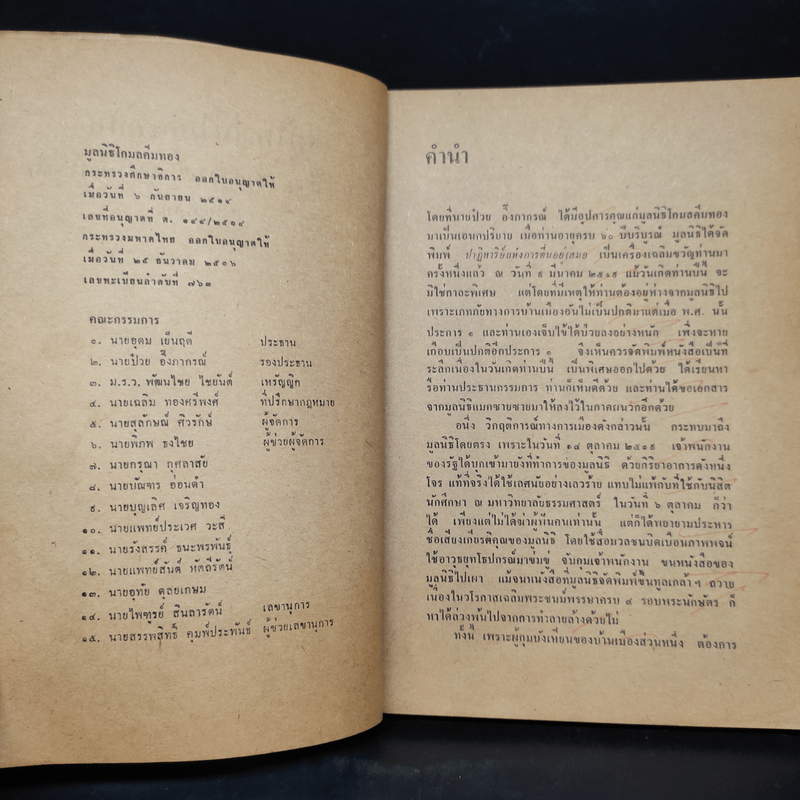 มูลนิธิโกมลคีมทอง
กระทรวงศึกษาธิการ ออกใบอนุญาตให้
เมื่อวันที่ ๖ กันยายน ๒๕๑๔
เลขที่อนุญาตที่ ต. ๑๔๔/๒๕๑๔
กระทรวงมหาดไทย ออกใบอนุญาตให้
เมื่อวันที่ ๒๕ ธันวาคม ๒๕๑๖
เลขทะเบียนลำดับที่ ๗๖๓
คณะกรรมการ
๑. นายอุดม เย็นฤดี ประธาน
๒. นายป๋วย อึ๊งภากรณ์ รองประธาน
๓. ม.ร.ว. พัฒนไชย ไชยันต์ เหรัญญิก
๔. นายเฉลิม ทองศรีพงศ์ ที่ปรึกษากฎหมาย
๕. นายสุลักษณ์ ศิวรักษ์ ผู้จัดการ
๖. นายพิภพ ธงไชย ผู้ช่วยผู้จัดการ
๗. นายกรุณา กุศลาสัย
๘. นายบัณฑร อ่อนดำ
๙. นายบุญเลิศ เจริญทอง
๑๐. นายแพทย์ประเวศ วะสี
๑๑. นายรังสรรค์ ธนะพรพันธุ์
๑๒. นายแพทย์สันต์ หัตถีรัตน์
๑๓. นายอุทัย ดุลยเกษม
๑๔. นายไพฑูรย์ สินลารัตน์ เลขานุการ
๑๕. นายสรรพสิทธิ์ คุมพ์ประพันธ์ ผู้ช่วยเลขานุการ
คำนำ
โดยที่นายป๋วย อึ๊งภากรณ์ ได้มีอุปการคุณแก่มูลนิธิโกมลคีมทอง
มาเป็นเอนกปริยาย เมื่อท่านอายุครบ ๖๐ ปีบริบูรณ์ มูลนิธิได้จัด
พิมพ์ ปาฏิหาริย์แห่งการตื่นอยู่เสมอ เป็นเครื่องเฉลิมขวัญท่านมา
ครั้งหนึ่งแล้ว ณ วันที่ ๙ มีนาคม ๒๕๑๙ แม้วันเกิดท่านปีนี้ จะ
มิใช่กาละพิเศษ แต่โดยที่มีเหตุให้ท่านต้องอยู่ห่างจากมูลนิธิไป
เพราะเภทภัยทางการบ้านเมืองอันไม่เป็นปกติมาแต่เมื่อ พ.ศ. นั้น
ประการ ๑ และท่านเองเจ็บไข้ได้ป่วยลงอย่างหนัก เพิ่งจะหาย
เกือบเป็นปกติอีกประการ ๑ จึงเห็นควรจัดพิมพ์หนังสือเป็นที่
ระลึกเนื่องในวันเกิดท่านปีนี้ เป็นพิเศษออกไปด้วย ได้เรียนหา
รือท่านประธานกรรมการ ท่านก็เห็นดีด้วย และท่านได้ขอเอกสาร
จากมูลนิธิแมกซายซายมาให้ลงไว้ในภาคผนวกอีกด้วย
อนึ่ง วิกฤติการณ์ทางการเมืองดังกล่าวนั้น กระทบมาถึง
มูลนิธิโดยตรง เพราะในวันที่ ๑๔ ตุลาคม ๒๕๑๙ เจ้าพนักงาน
ของรัฐได้บุกเข้ามายังที่ทำการของมูลนิธิ ด้วยกิริยาอาการดังหนึ่ง
โจร แท้ที่จริงได้ใช้เลศนัยอย่างเลวร้าย แทบไม่แพ้กับที่ใช้กับนิสิต
นักศึกษา ณ มหาวิทยาลัยธรรมศาสตร์ ในวันที่ ๖ ตุลาคม ก็ว่า
ได้ เพียงแต่ไม่ได้ฆ่าผู้ฟันคนเท่านั้น แต่ก็ได้พยายามประหาร
ชื่อเสียงเกียรติคุณของมูลนิธิ โดยใช้สื่อมวลชนบิดเบือนภาพพจน์
ใช้อาวุธยุทโธปกรณ์มาข่มขู่ จับกุมเจ้าพนักงาน ขนหนังสือของ
มูลนิธิไปเผา แม้จนหนังสือที่มูลนิธิจัดพิมพ์ขึ้นทูลเกล้า ฯ ถวาย
เนื่องในวโรกาสเฉลิมพระชนม์พรรษาครบ ๔ รอบพระนักษัตร ก็
หาได้ล่วงพ้นไปจากการทำลายล้างด้วยไม่
ทั้งนี้ เพราะผู้กุมบังเหียนของบ้านเมืองส่วนหนึ่ง ต้องการ